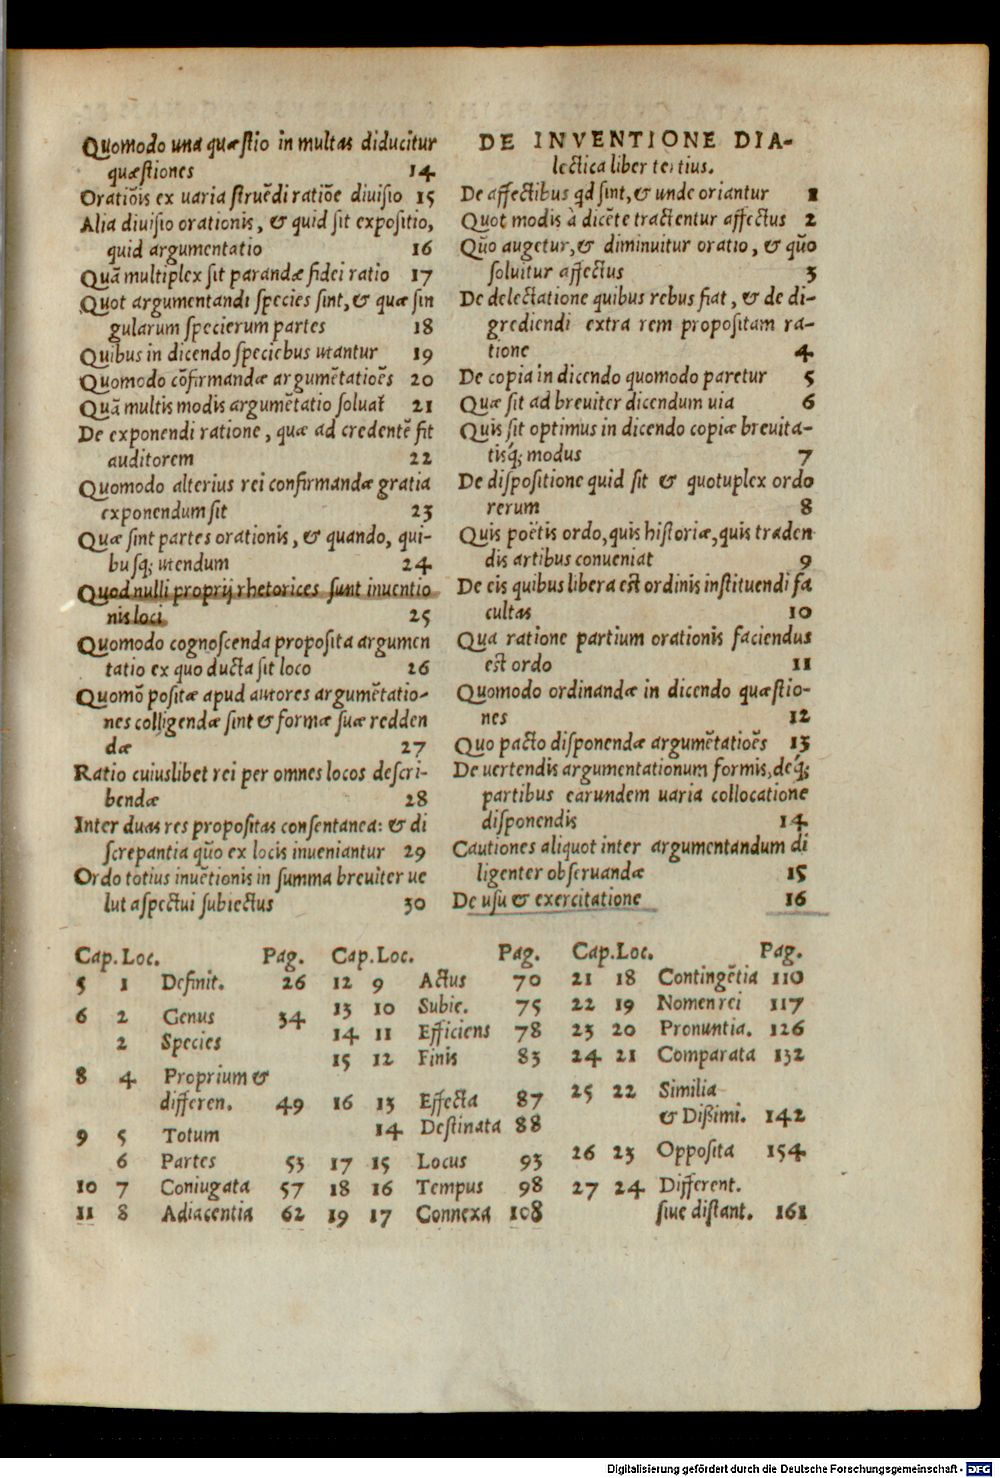 Quomodo una quæstio in multas diducitur
quæstiones 14
Oratiōis ex uaria struēdi ratiōe diuisio 15
Alia diuisio orationis, & quid sit expositio,
quid argumentatio 16
Quā multiplex sit parandæ fidei ratio 17
Quot argumentandi species sint, & quæ sin
gularum specierum partes 18
Quibus in dicendo speciebus utantur 19
Quomodo cōfirmandæ argumētatioēs 20
Quā multis modis argumētatio soluat̄ 21
De exponendi ratione, quæ ad credentē fit
auditorem 22
Quomodo alterius rei confirmandæ gratia
exponendum sit 23
Quæ sint partes orationis, & quando, qui-
busq; utendum 24
Quod nulli proprij rhetorices sunt inuentio
nis loci 25
Quomodo cognoscenda proposita argumen
tatio ex quo ducta sit loco 26
Quomō positæ apud autores argumētatio-
nes colligendæ sint & formæ suæ redden
dæ 27
Ratio cuiuslibet rei per omnes locos descri-
bendæ 28
Inter duas res propositas consentanea: & di
screpantia quō ex locis inueniantur 29
Ordo totius inuētionis in summa breuiter ue
lut aspectui subiectus 30
DE INVENTIONE DIA-
lectica liber tertius.
De affectibus qd sint, & unde oriantur 1
Quot modis à dicēte tractentur affectus 2
Quō augetur, & diminuitur oratio, & quō
soluitur affectus 3
De delectatione quibus rebus fiat, & de di-
grediendi extra rem propositam ra-
tione 4
De copia in dicendo quomodo paretur 5
Quæ sit ad breuiter dicendum uia 6
Quis sit optimus in dicendo copiæ breuita-
tisq́; modus 7
De dispositione quid sit & quotuplex ordo
rerum 8
Quis poëtis ordo, quis historiæ, quis traden
dis artibus conueniat 9
De eis quibus libera est ordinis instituendi fa
cultas 10
Qua ratione partium orationis faciendus
est ordo 11
Quomodo ordinandæ in dicendo quæstio-
nes 12
Quo pacto disponendæ argumētatioēs 13
De uertendis argumentationum formis, deq́;
partibus earundem uaria collocatione
disponendis 14
Cautiones aliquot inter argumentandum di
ligenter obseruandæ 15
De usu & exercitatione 16
Cap. Loc. Pag.
5 1 Definit. 26
6 2 Genus 34
2 Species
8 4 Proprium &
differen. 49
9 5 Totum
6 Partes 53
10 7 Coniugata 57
11 8 Adiacentia 62
Cap. Loc. Pag.
12 9 Actus 70
13 10 Subie. 75
14 11 Efficiens 78
15 12 Finis 83
16 13 Effecta 87
14 Destinata 88
17 15 Locus 93
18 16 Tempus 98
19 17 Connexa 108
Cap. Loc. Pag.
21 18 Contingētia 110
22 19 Nomen rei 117
23 20 Pronuntia. 126
24 21 Comparata 132
25 22 Similia
& Dißimi. 142
26 23 Opposita 154
27 24 Different.
siue distant. 161
Digitalisierung gefördert durch die Deutsche Forschungsgemeinschaft - DFG